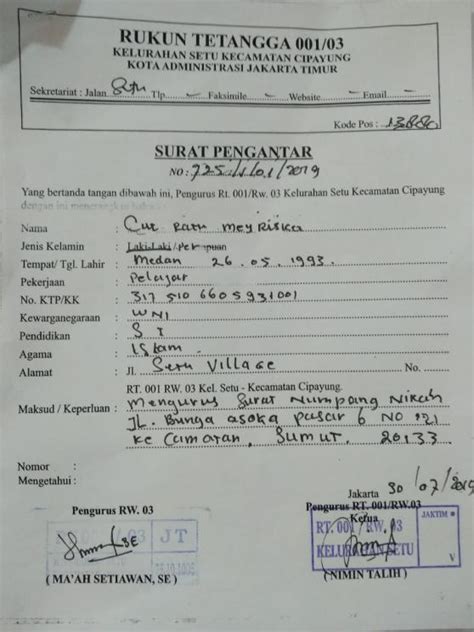 RUKUN TETANGGA 001/03
KELURAHAN SETU KECAMATAN CIPAYUNG
KOTA ADMINISTRASI JAKARTA TIMUR
Sekretariat : Jalan Setu Tlp. – Faksimile – Website – Email –
Kode Pos : 13880
SURAT PENGANTAR
NO : 725 /1/01/2019
Yang bertanda tangan dibawah ini, Pengurus Rt. 001/Rw. 03 Kelurahan Setu Kecamatan Cipayung
dengan ini menerangkan bahwa
Nama : Cut Ratu Meyriska
Jenis Kelamin : Laki-Laki/Perempuan
Tempat/ Tgl. Lahir : Medan 26.05.1993
Pekerjaan : Pelajar
No. KTP/KK : 317 510 6605931001
Kewarganegaraan : WNI
Pendidikan : S 1
Agama : Islam
Alamat : Jl. Setu Village No.
RT. 001 RW. 03 Kel. Setu - Kecamatan Cipayung.
Maksud / Keperluan : Mengurus Surat Numpang Nikah
JL. Bunga asoka pasar 6 NO 21
ke Camatan, Sumut, 20133
Nomor :
Mengetahui :
Jakarta 30/07/2019
Pengurus RW. 03
Pengurus RT. 001/RW.03
Ketua
JT
RT. 001 / RW. 03
KELURAHAN SETU
JAKTIM
V
( MA'AH SETIAWAN, SE )
(NIMIN TALIH )